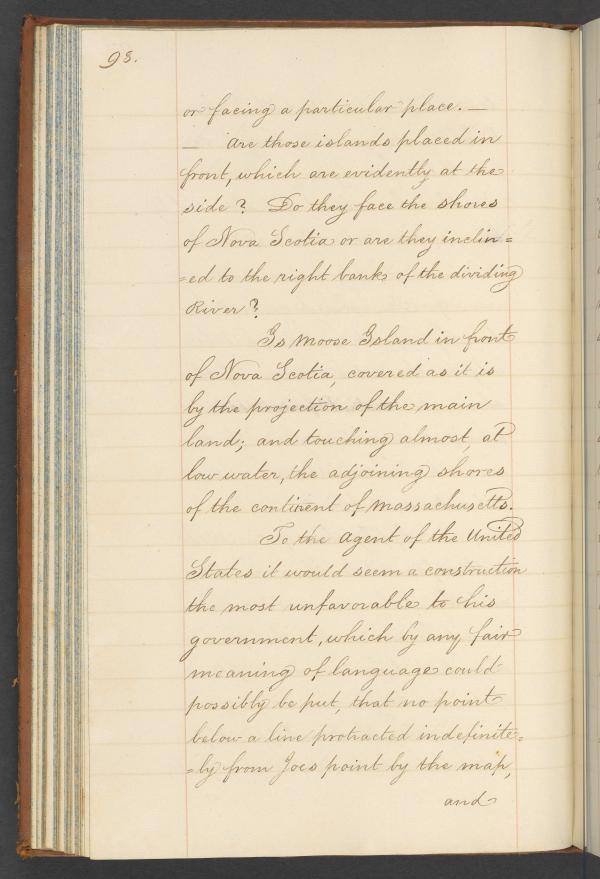 98.
or facing a particular place. —
— Are those islands placed in
front, which are evidently at the
side? Do they face the shores
of Nova Scotia or are they inclin=
=ed to the right bank of the dividing
River?
Is Moose Island in front
of Nova Scotia, covered as it is
by the projection of the main
land; and touching almost, at
low water, the adjoining shores
of the continent of Massachusetts.
To the Agent of the United
States it would seem a construction
the most unfavorable to his
government, which by any fair
meaning of language could
possibly be put, that no point
below a line protracted indefinite=
=ly from Joes point by the map,
and